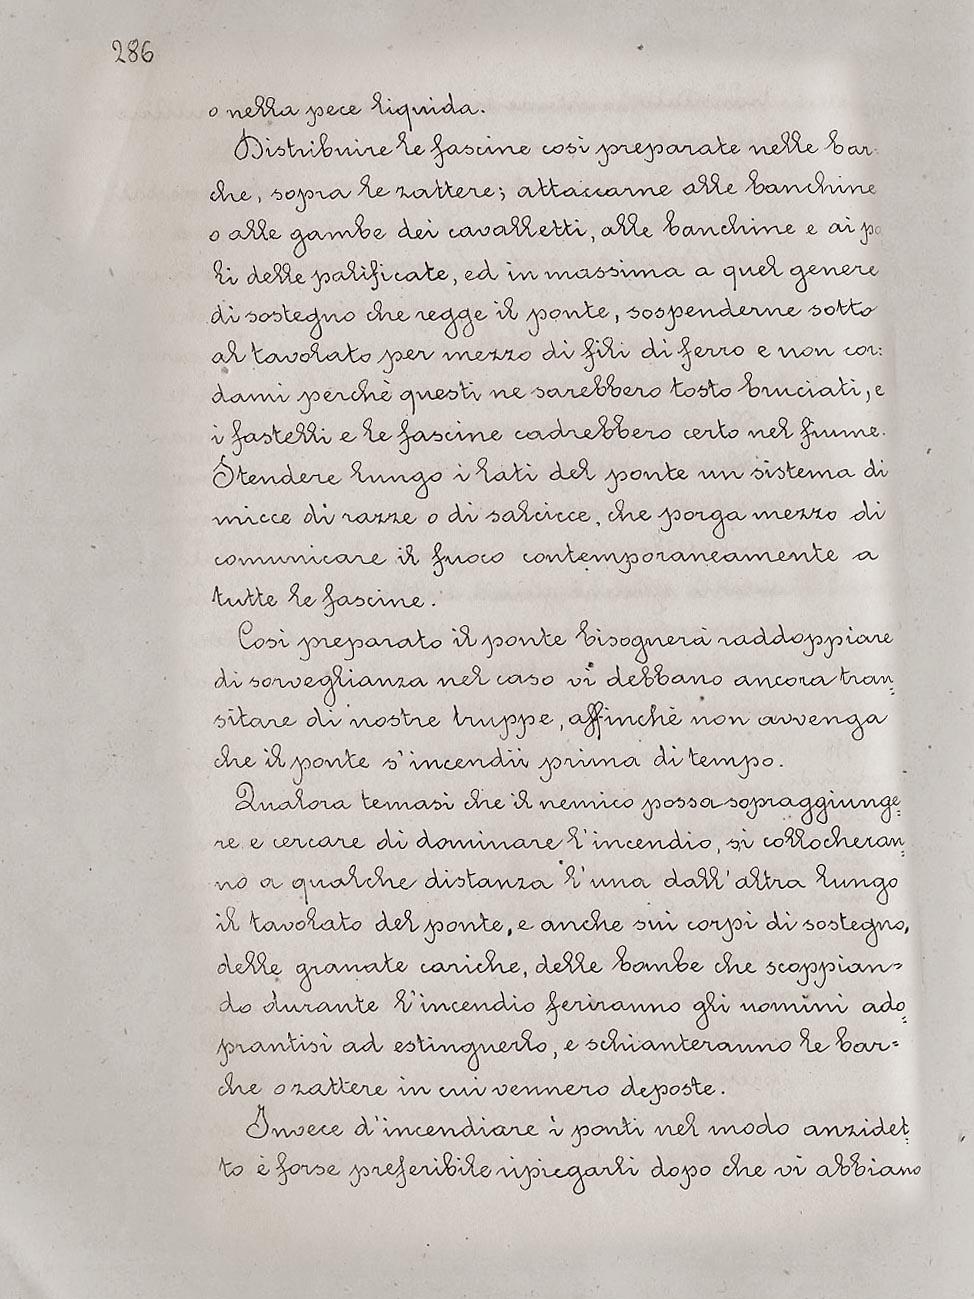 286
o nella pece liquida.
Distribuire le fascine così preparate nelle bar-
che, sopra le zattere; attaccarne alle banchine
o alle gambe dei cavalletti, alle banchine e ai pa
li delle palificate, ed in massima a quel genere
di sostegno che regge il ponte, sospenderne sotto
al tavolato per mezzo di fili di ferro e non cor:
dami perchè questi ne sarebbero tosto bruciati, e
i fastelli e le fascine cadrebbero certo nel fiume.
Stendere lungo i lati del ponte un sistema di
micce di razze o di salcicce, che porga mezzo di
comunicare il fuoco contemporaneamente a
tutte le fascine.
Così preparato il ponte bisognerà raddoppiare
di sorveglianza nel caso vi debbano ancora tran=
sitare di nostre truppe, affinchè non avvenga
che il ponte s'incendii prima di tempo.
Qualora temasi che il nemico possa sopraggiunge=
re e cercare di dominare l'incendio, si collocheran=
no a qualche distanza l'una dall'altra lungo
il tavolato del ponte, e anche sui corpi di sostegno,
delle granate cariche, delle bombe che scoppian=
do durante l'incendio feriranno gli uomini ado=
prantisi ad estinguerlo, e schianteranno le bar=
che o zattere in cui vennero deposte.
Invece d'incendiare i ponti nel modo anzidet=
to è forse preferibile ripiegarli dopo che vi abbiano